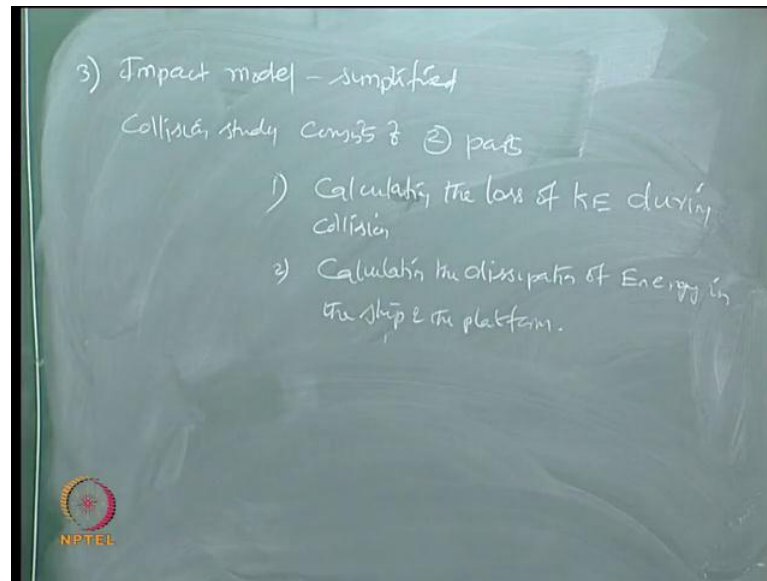 3) Impact model - simplified
Collision study consists of ② parts
1) Calculating the loss of KE during
collision
2) Calculating the dissipation of Energy in
the ship & the platform.
NPTEL